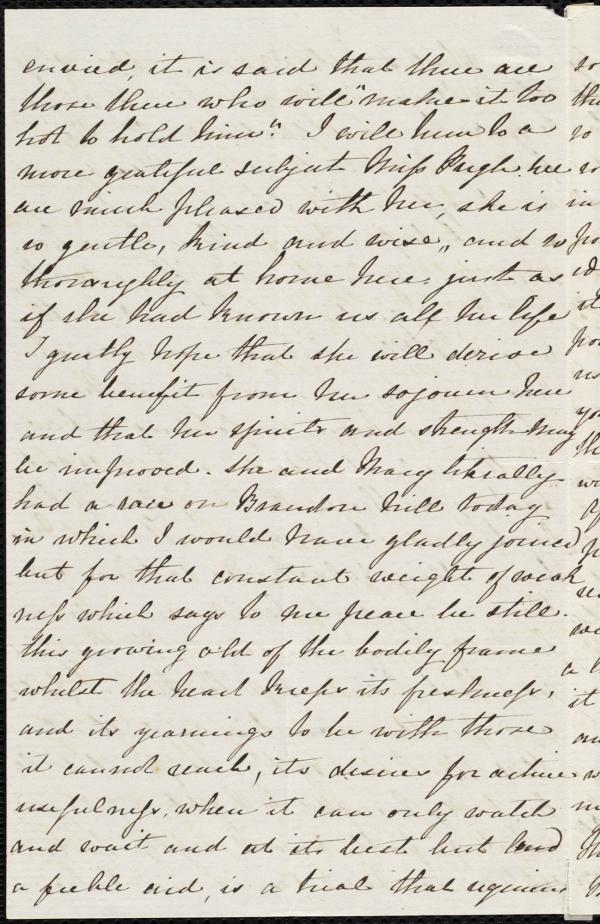 envied, it is said that there are
those there who will "make it too
hot to hold him". I will turn to a
more grateful subject Miss Pugh. we
are much pleased with her, she is
so gentle, kind and wise, and so
thoroughly at home here. just as
if she had known us all her life
I greatly hope that she will derive
some benefit from her sojourn here
and that her spirits and strength may
be improved. She and Mary literally
had a race on Brandon hill today
in which I would have gladly joined
but for that constant weight of weak
ness which says to me peace be still.
this growing old of the bodily frame
whilst the heart keeps its freshness,
and its yearnings to be with those
it cannot reach, its desires for active
usefulness, when it can only watch
and wait and at its best but lend
a feeble aid, is a trial that requires